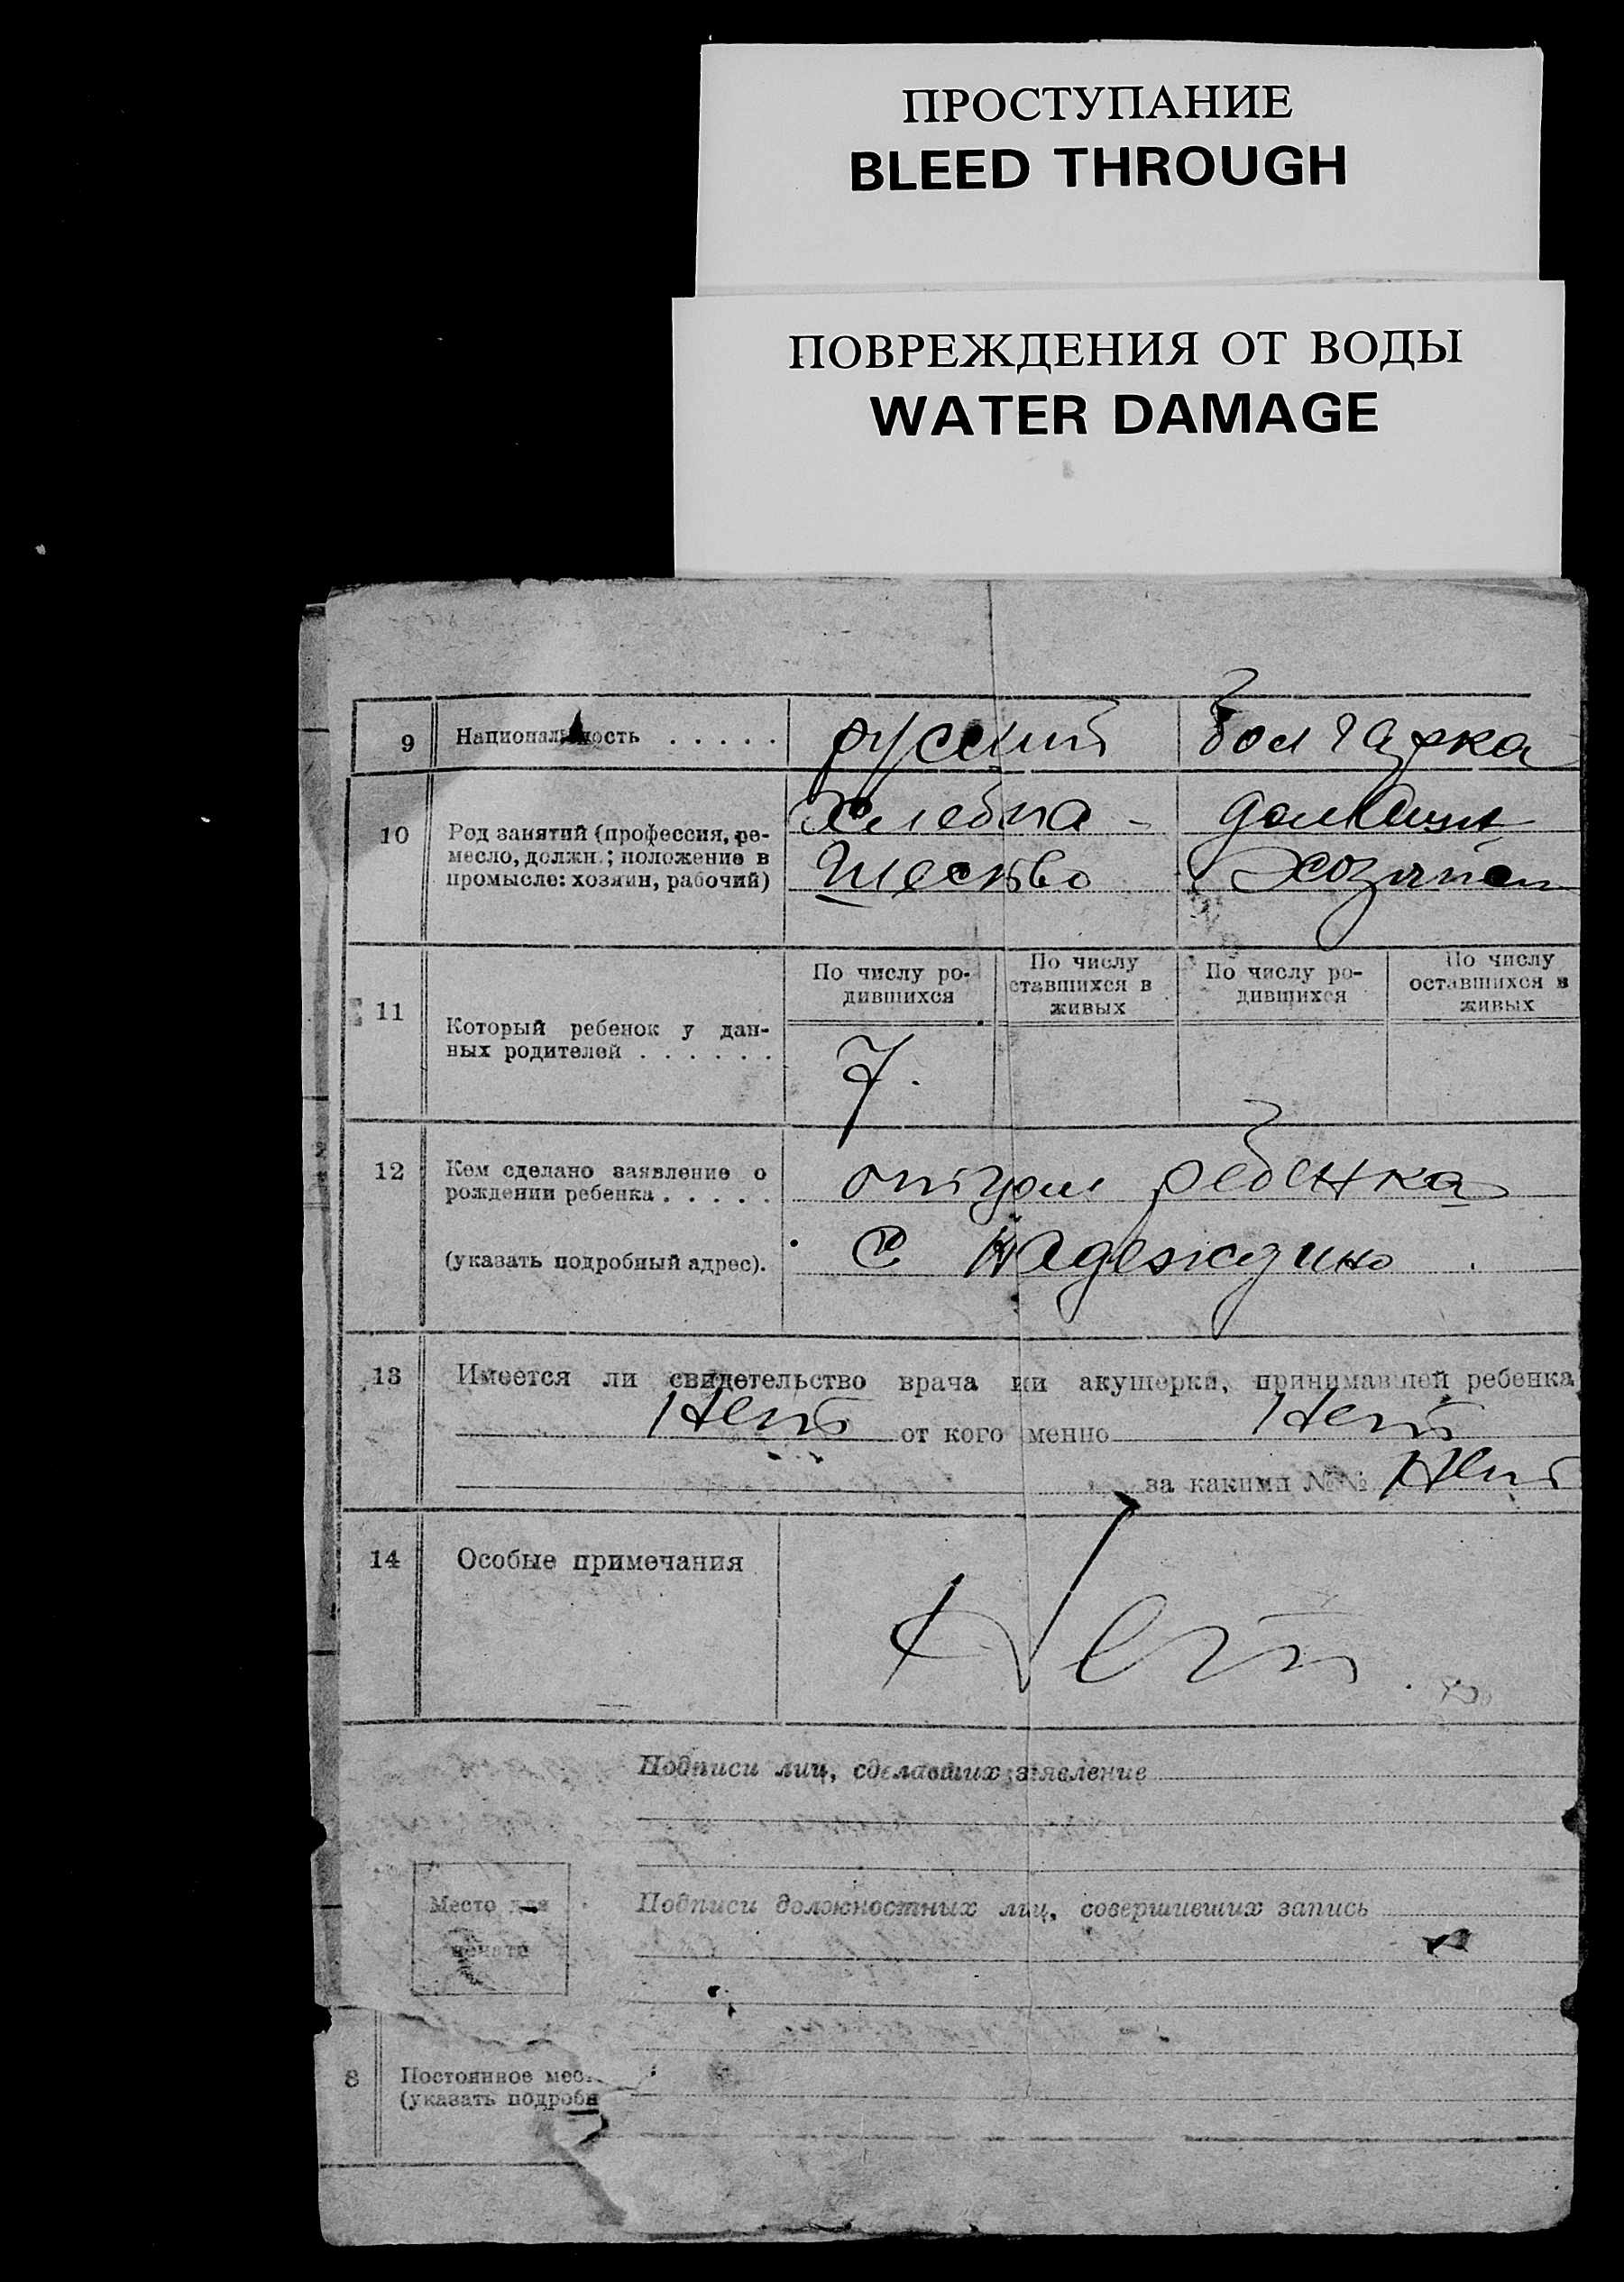 ПРОСТУПАНИЕ
BLEED THROUGH
ПОВРЕЖДЕНИЯ ОТ ВОДЫ
WATER DAMAGE
9 Национальность . . . . . русский болгарка
10 Род занятий (профессия, ре-
месло, должн.; положение в
промысле: хозяин, рабочий)
Хлебопа-
шество
домашн
хозяйст
11 Который ребенок у дан-
ных родителей . . . . . .
По числу ро-
дившихся
По числу
ставшихся в
живых
По числу ро-
дившихся
По числу
оставшихся в
живых
7.
12 Кем сделано заявление о
рождении ребенка . . . . .
отцом ребенка
(указать подробный адрес). с Надеждино
13 Имеется ли свидетельство врача ни акушерки, принимавшей ребенка
Нет от кого менно Нет
за какими №№ Нет
14 Особые примечания Нет.
Подписи лиц, сделавших заявление
Место для
печати
Подписи должностных лиц, совершивших запись
8 Постоянное мес
(указать подробн